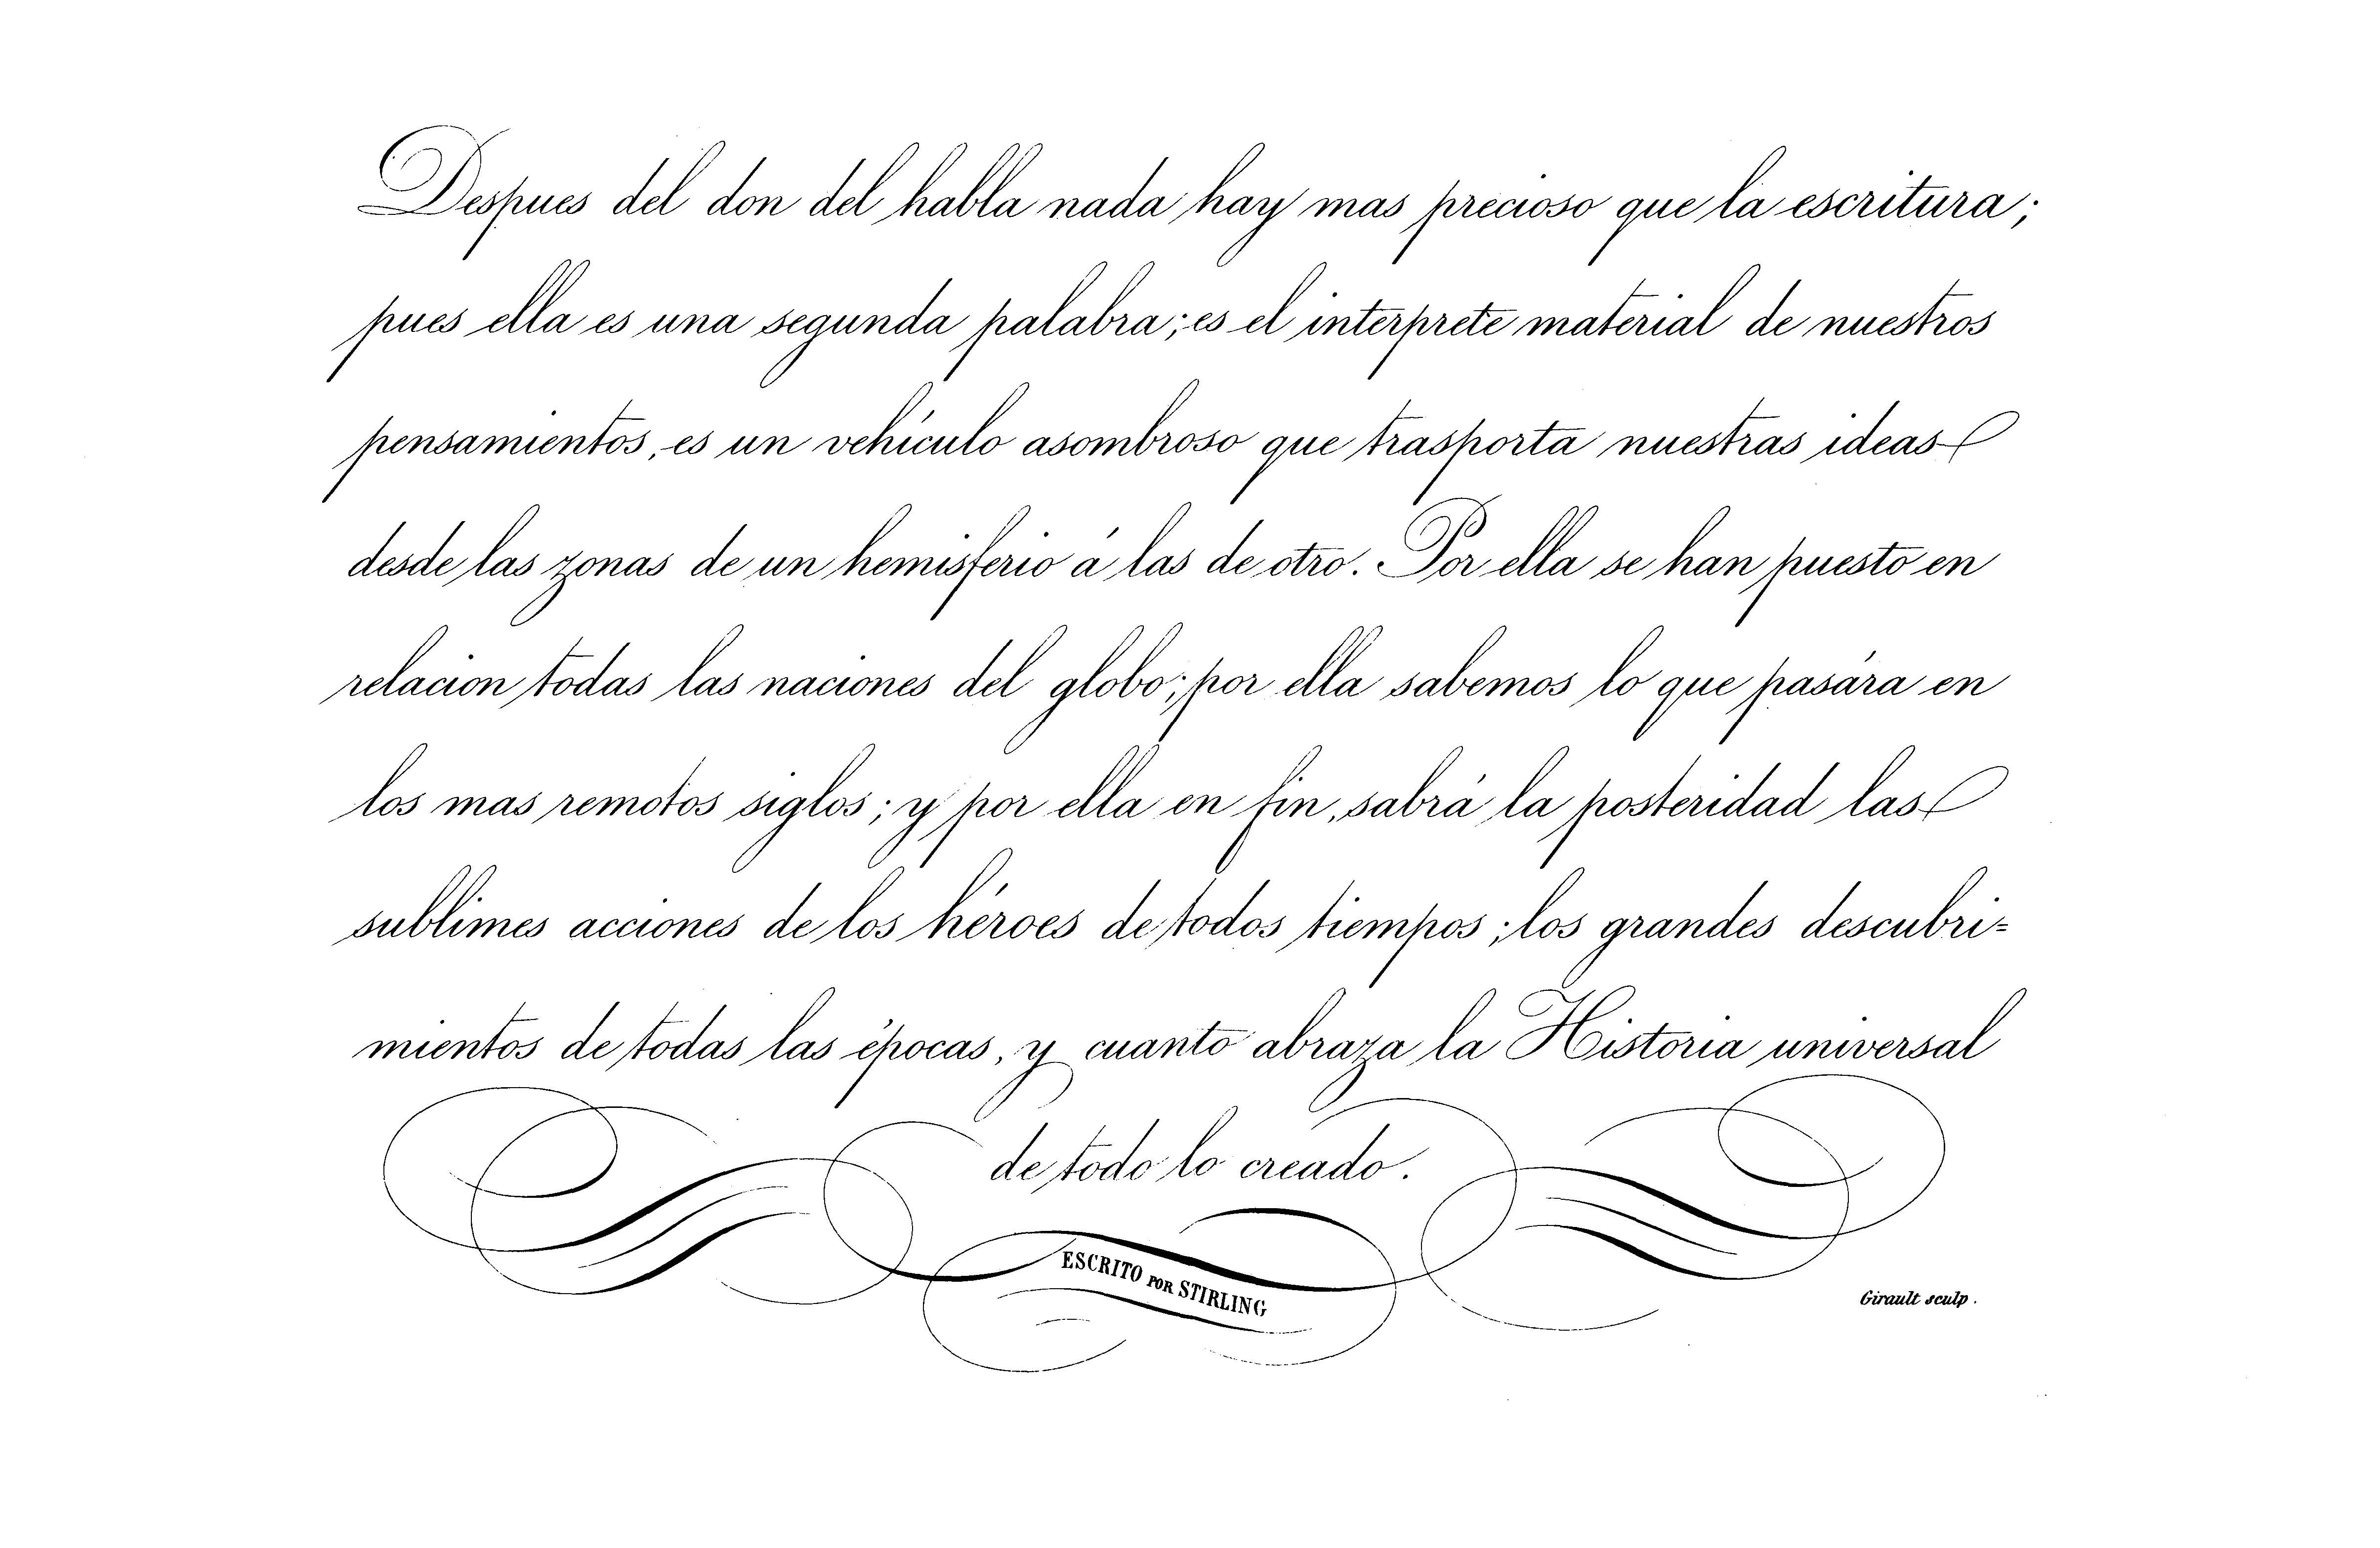 Despues del don del habla nada hay mas precioso que la escritura;
pues ella es una segunda palabra; es el interprete material de nuestros
pensamientos, es un vehículo asombroso que trasporta nuestras ideas
desde las zonas de un hemisferio á las de otro. Por ella se han puesto en
relacion todas las naciones del globo; por ella sabemos lo que pasára en
los mas remotos siglos; y por ella en fin, sabrá la posteridad las
sublimes acciones de los héroes de todos tiempos; los grandes descubri=
mientos de todas las épocas, y cuanto abraza la Historia universal
de todo lo creado.
ESCRITO POR STIRLING
Girault sculp.